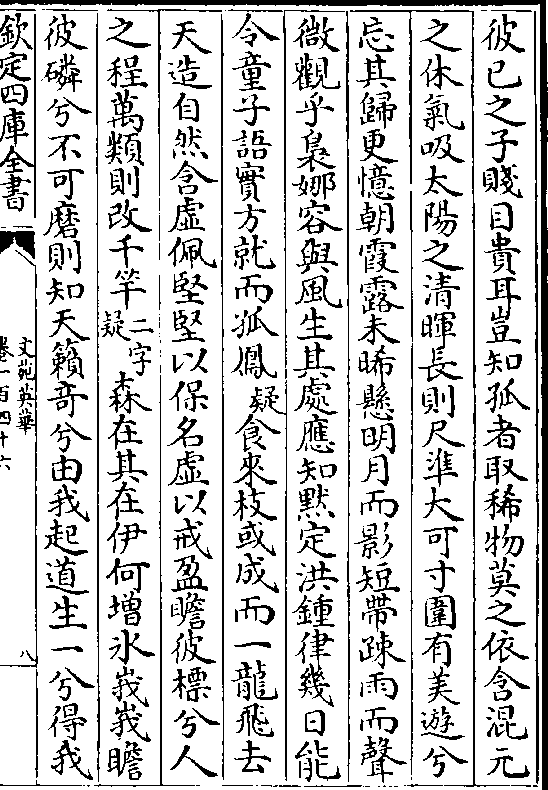 彼已之子賤目貴耳豈知孤者取稀物莫之依含混元
之休氣吸太陽之清暉長則尺準大可寸圍有美遊兮
忘其歸更憶朝霞露未晞懸明月而影短帶疎雨而聲
微觀乎裊娜容與風生其處應知黙定洪鍾律幾日能
令童子語實方就而孤鳳疑食來枝或成而一龍飛去
天造自然含虛佩堅堅以保名虛以戒盈瞻彼標兮人
之程萬類則改千竿二字疑森在其在伊何增氷峩峩瞻
彼磷兮不可磨則知天籟竒兮由我起道生一兮得我
欽定四庫全書
文苑英華
卷一百四十六
八